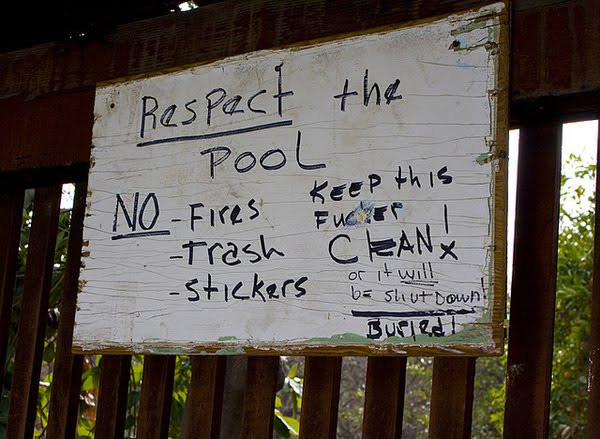 Respect the
POOL
NO - Fires
- Trash
- Stickers
KEEP this
Fucker
CLEAN!
or it will
be shut Down!
Buried!